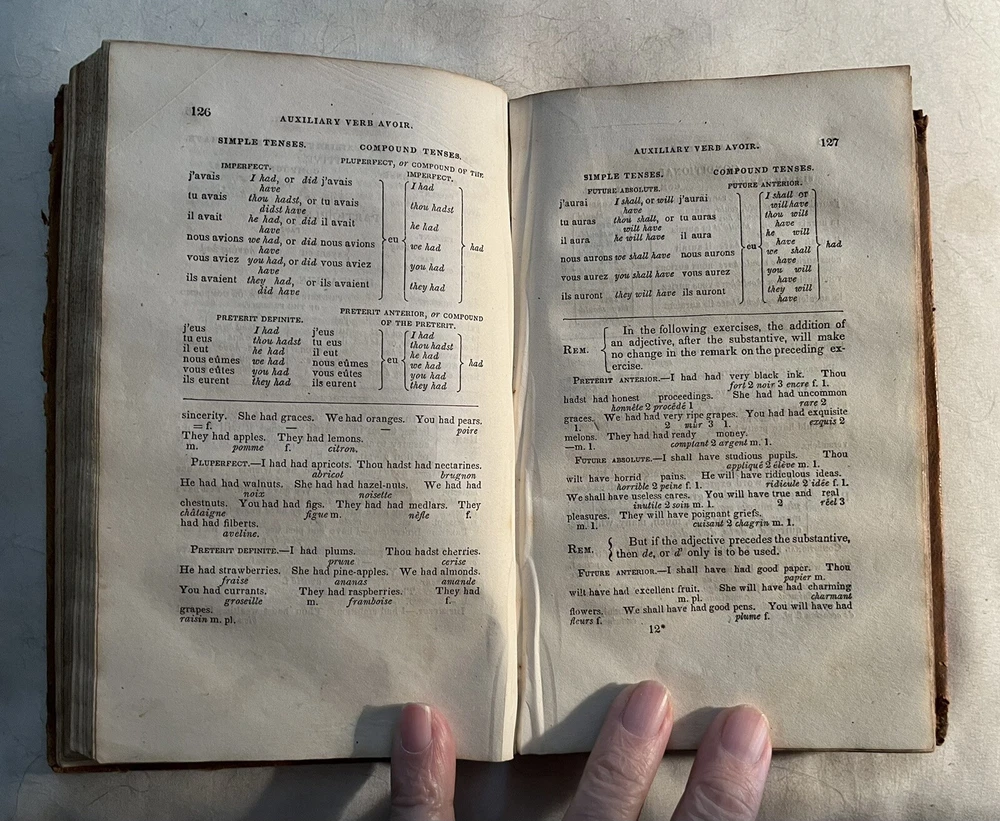 126
AUXILIARY VERB AVOIR.
SIMPLE TENSES. COMPOUND TENSES.
IMPERFECT. PLUPERFECT, or COMPOUND OF THE IMPERFECT.
j'avais I had, or did have j'avais I had
tu avais thou hadst, or didst have tu avais thou hadst
il avait he had, or did have il avait he had
nous avions we had, or did have nous avions eu we had had
vous aviez you had, or did have vous aviez you had
ils avaient they had, or did have ils avaient they had
PRETERIT DEFINITE. PRETERIT ANTERIOR, or COMPOUND OF THE PRETERIT.
j'eus I had j'eus I had
tu eus thou hadst tu eus thou hadst
il eut he had il eut he had
nous eûmes we had nous eûmes eu we had had
vous eûtes you had vous eûtes you had
ils eurent they had ils eurent they had
sincerity. She had graces. We had oranges. You had pears.
= f. — — poire
They had apples. They had lemons.
m. pomme f. citron.
PLUPERFECT.—I had had apricots. Thou hadst had nectarines.
abricot brugnon
He had had walnuts. She had had hazel-nuts. We had had
noix noisette
chestnuts. You had had figs. They had had medlars. They
châtaigne figue m. nèfle f.
had had filberts.
aveline.
PRETERIT DEFINITE.—I had plums. Thou hadst cherries.
prune cerise
He had strawberries. She had pine-apples. We had almonds.
fraise ananas amande
You had currants. They had raspberries. They had
groseille m. framboise f.
grapes.
raisin m. pl.
AUXILIARY VERB AVOIR. 127
SIMPLE TENSES. COMPOUND TENSES.
FUTURE ABSOLUTE. FUTURE ANTERIOR.
j'aurai I shall, or will have j'aurai I shall or will have
tu auras thou shalt, or wilt have tu auras thou wilt have
il aura he will have il aura eu he will have had
nous aurons we shall have nous aurons we shall have
vous aurez you shall have vous aurez you will have
ils auront they will have ils auront they will have
REM. In the following exercises, the addition of
an adjective, after the substantive, will make
no change in the remark on the preceding ex-
ercise.
PRETERIT ANTERIOR.—I had had very black ink. Thou
fort 2 noir 3 encre f. 1.
hadst had honest proceedings. She had had uncommon
honnête 2 procédé 1 rare 2
graces. We had had very ripe grapes. You had had exquisite
1. 2 mûr 3 1. exquis 2
melons. They had had ready money.
—m. 1. comptant 2 argent m. 1.
FUTURE ABSOLUTE.—I shall have studious pupils. Thou
appliqué 2 élève m. 1.
wilt have horrid pains. He will have ridiculous ideas.
horrible 2 peine f. 1. ridicule 2 idée f. 1.
We shall have useless cares. You will have true and real
inutile 2 soin m. 1. 2 réel 3
pleasures. They will have poignant griefs.
m. 1. cuisant 2 chagrin m. 1.
REM. But if the adjective precedes the substantive,
then de, or d' only is to be used.
FUTURE ANTERIOR.—I shall have had good paper. Thou
papier m.
wilt have had excellent fruit. She will have had charming
m. pl. charmant
flowers. We shall have had good pens. You will have had
fleurs f. plume f.
12*